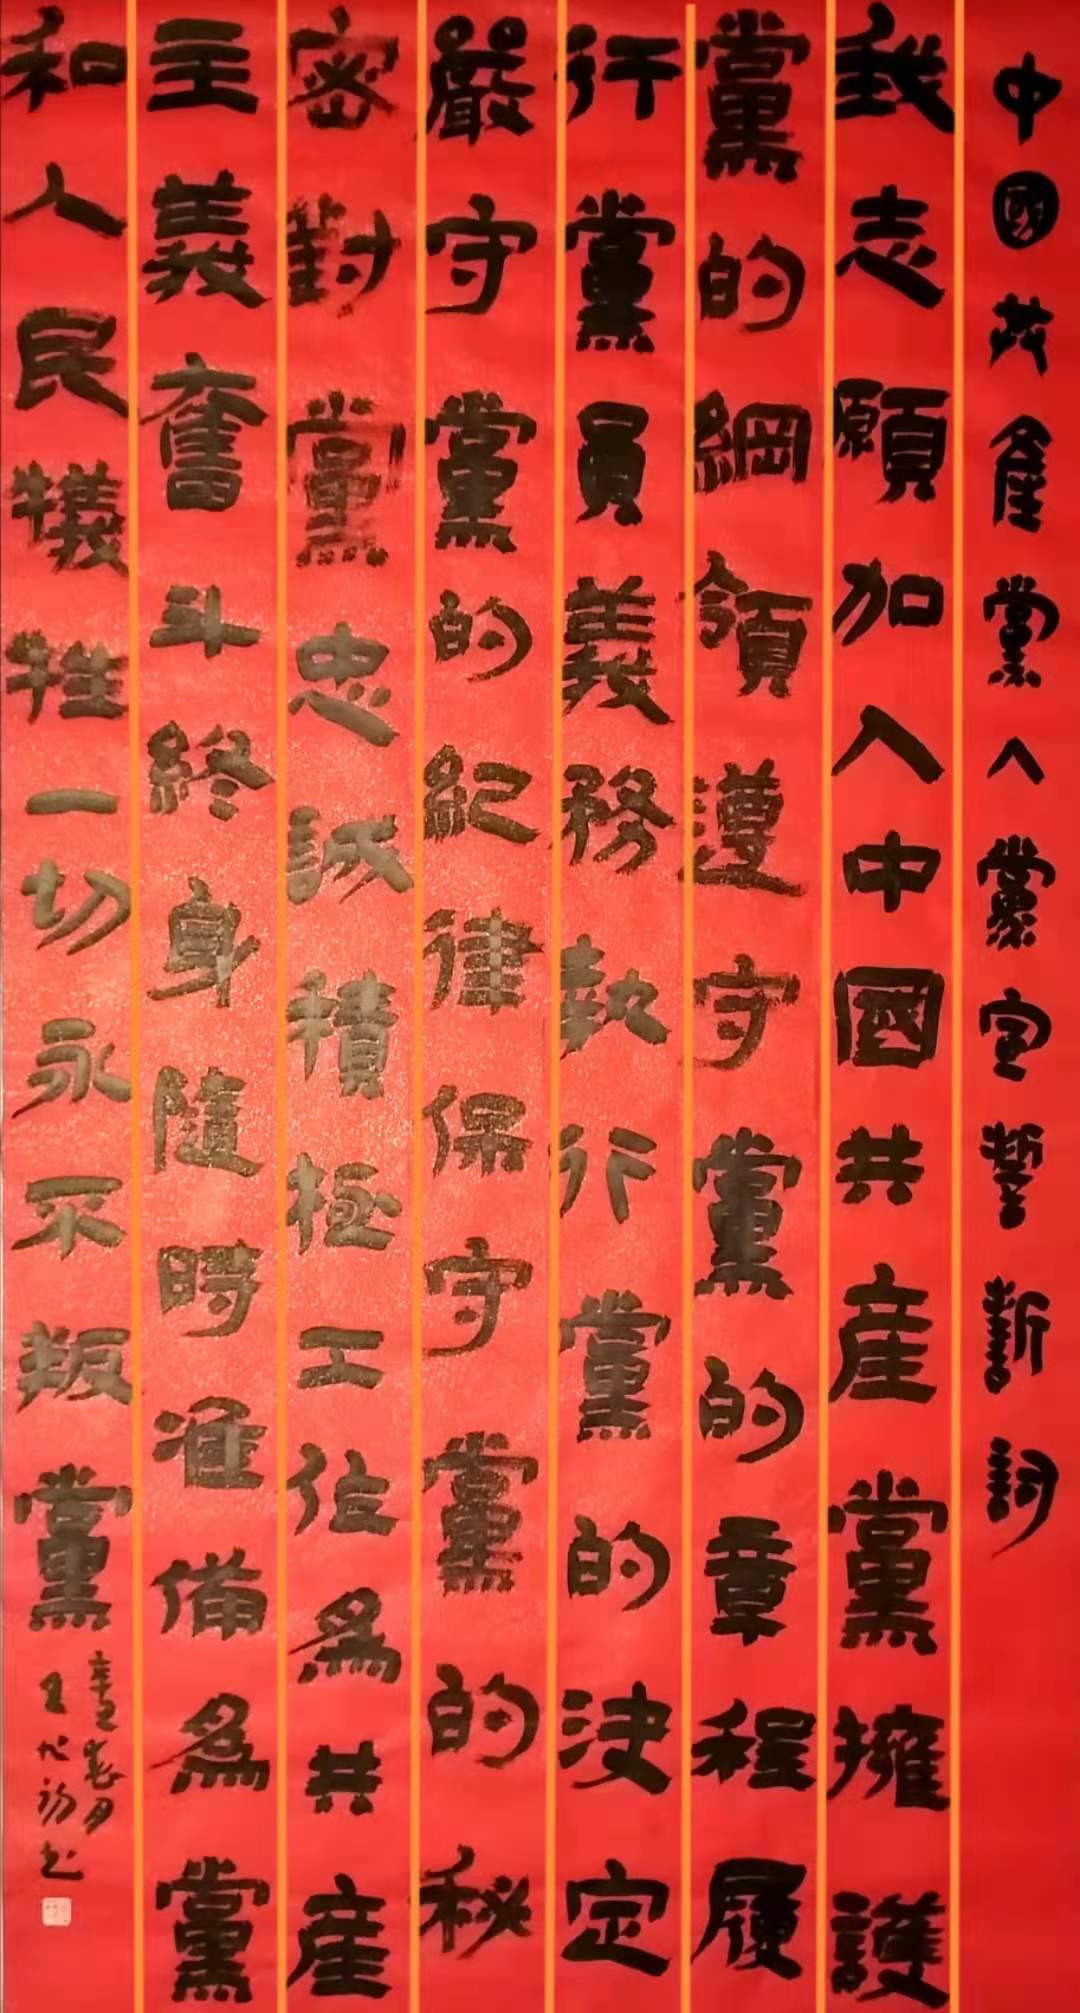 中國共産黨入黨宣誓新詞
我志願加入中國共産黨擁護
黨的綱領遵守黨的章程履
行黨員義務執行黨的決定
嚴守黨的紀律保守黨的秘
密對黨忠誠積極工作爲共産
主義奮斗終身隨時准備爲黨
和人民犧牲一切永不叛黨